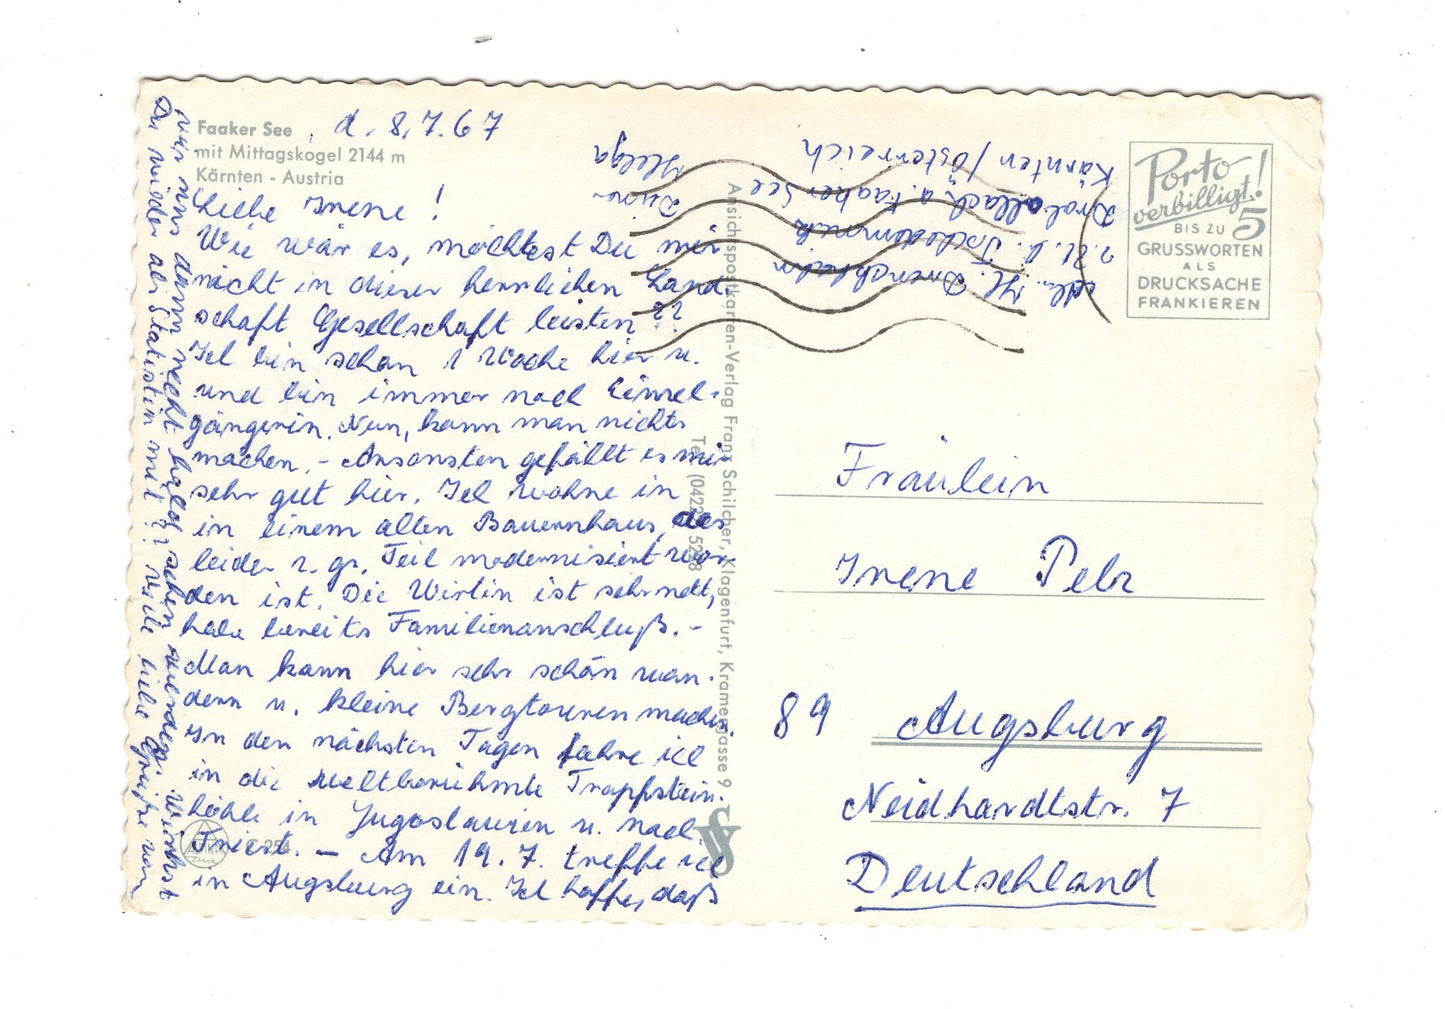 Faaker See
mit Mittagskogel 2144 m
Kärnten - Austria
d. 8.7.67
Liebe Irene!
Wie wär es, möchtest Du mir
nicht in dieser herrlichen Land-
schaft Gesellschaft leisten??
Ich bin schon 1 Woche hier u.
und bin immer noch Einzel-
gängerin. Nun, kann man nichts
machen. - Ansonsten gefällt es mir
sehr gut hier. Ich wohne in
in einem alten Bauernhaus, das
leider z. gr. Teil modernisiert wor-
den ist. Die Wirtin ist sehr nett,
habe bereits Familienanschluß. -
Man kann hier sehr schön wan-
dern u. kleine Bergtouren machen.
In den nächsten Tagen fahre ich
in die weltberühmte Tropfstein-
höhle in Jugoslawien u. nach
Triest. - Am 19. 7. treffe ich
in Augsburg ein. Ich hoffe, daß
wir uns dann recht bald sehen werden. Wirkst
Du wieder als Statistin mit?? Viele liebe Grüße von
Deiner
Helga
Abs. H.
z. Zt. b.
Drobollach a. Faaker See
Kärnten/Österreich
Ansichtspostkarten-Verlag Franz Schilcher, Klagenfurt, Kramergasse 9
Porto
verbilligt!
BIS ZU 5
GRUSSWORTEN
ALS
DRUCKSACHE
FRANKIEREN
Fräulein
Irene Pelz
89 Augsburg
Neidhardtstr. 7
Deutschland